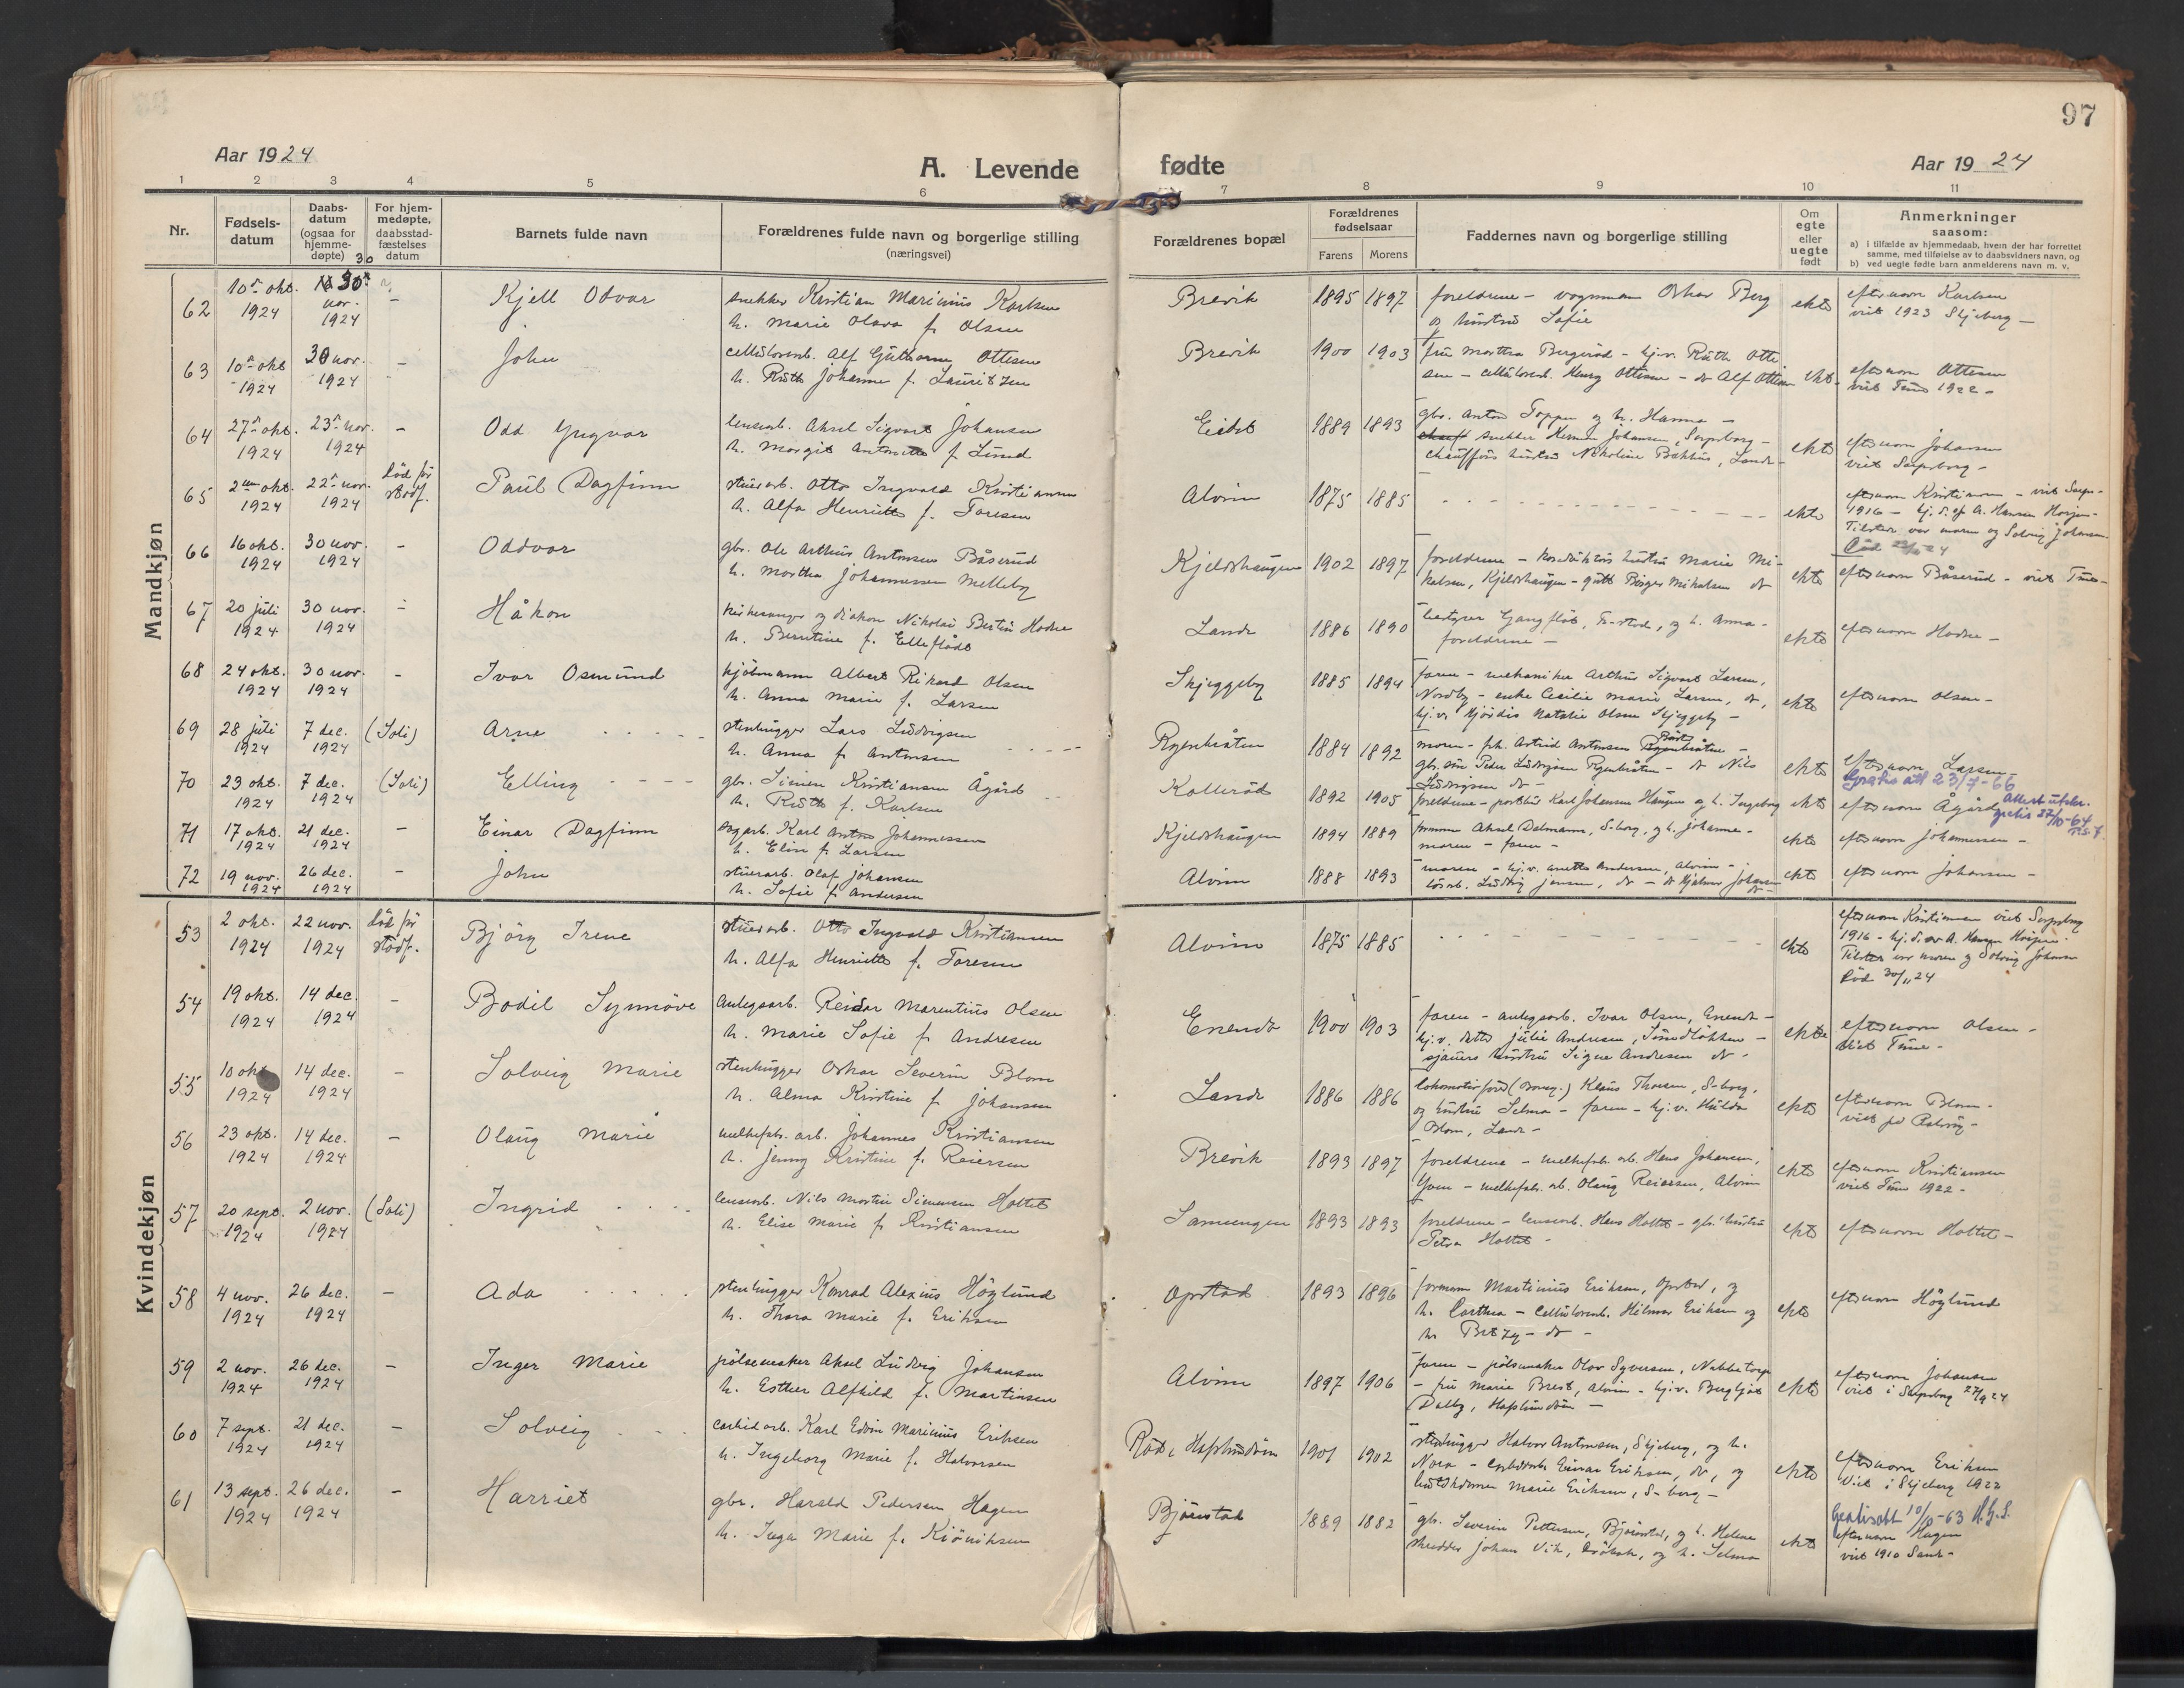 97
Aar 1924
A. Levende fødte
Aar 1924
1 2 3 4 5 6 7 8 9 10 11
Nr.
Fødsels-
datum
Daabs-
datum
(ogsaa for
hjemme-
døpte)
For hjem-
medøpte,
daabsstad-
fæstelses
datum
Barnets fulde navn
Forældrenes fulde navn og borgerlige stilling
(næringsvei)
Forældrenes bopæl
Forældrenes
fødselsaar
Farens Morens
Faddernes navn og borgerlige stilling
Om
egte
eller
uegte
født
Anmerkninger
saasom:
a) i tilfælde av hjemmedaab, hvem der har forrettet
samme, med tilføielse av to daabsvidners navn, og
b) ved uegte fødte barn anmelderens navn m. v.
Mandkjøn
62 10de okt. 1924 30 nov. 1924 – Kjell Odvar snekker Kristian Marinius Karlsen
h. Marie Olava f. Olsen Brevik 1895 1897 foreldrene – vognmann Oskar Berg
og hustru Sofie ekte efternavn Karlsen
viet 1923 Skjeberg –
63 10de okt 1924 30 nov. 1924 – John cellulosearb. Alf Guttorm Ottesen
h. Ruth Johanne f. Lauritzen Brevik 1900 1903 fru Marthea Bergerød – hj.v. Ruth Otte
sen – cellulosearb. Henry Ottesen – do Alf Ottesen ekte efternavn Ottesen
viet Tune 1922 –
64 27de okt. 1924 23de nov. 1924 – Odd Yngvar lensearb. Aksel Sigvart Johansen
h. Margit Antonette f. Lund Eidet 1889 1893 gbr. Anton Toppen og h. Hanna –
snekker Herman Johansen, Sarpsborg –
chaufførs hustru Nikoline Bakhus, Lande ekte efternavn Johansen
viet Sarpsborg –
65 2den okt. 1924 22de nov. 1924 død før stadf. Paul Dagfinn stuerarb. Otto Ingvald Kristiansen
h. Alfa Henriette f. Toresen Alvim 1875 1885 – – – ekte efternavn Kristiansen – viet Sarps-
1916 – hj.d. af A. Hansen Horgen
Tilstede var moren og Solveig Johansen
66 16 okt. 1924 30 nov. 1924 – Oddvar gbr. Ole Arthur Antonsen Båserud
h. Marthea Johannessen Melleby Kjeldshaugen 1902 1897 foreldrene – hustru Marie Mi-
kelsen, Kjeldshaugen – gutt Birger Mikelsen do ekte efternavn Båserud – viet Tune –
67 20 juli 1924 30 nov. 1924 – Håkon kirkesanger og diakon Nikolai Bertin Hodne
h. Berntine f. Elleflådt Lande 1886 1890 bestyrer Gangfløt, Fr.stad, og h. Anna –
foreldrene – ekte efternavn Hodne –
68 24 okt. 1924 30 nov. 1924 – Ivar Osmund kjøbmann Albert Rikard Olsen
h. Anna Marie f. Larsen Skjeggeby 1885 1894 faren – mekaniker Arthur Sigvart Larsen,
Nordby – enke Cecilie Marie Larsen, do,
hj.v. Hjørdis Natalie Olsen Skjeggeby – ekte efternavn Olsen –
69 28 juli 1924 7 dec. 1924 (Soli) Arne stenhugger Lars Ludvigsen
h. Anna f. Antonsen Ryenbråten 1884 1892 moren – frk. Astrid Antonsen
gbr. søn Peder Ludvigsen Ryenbråten – do Nils
Ludvigsen do – ekte efternavn Larsen
Gratis att 23/7-66
70 23 okt. 1924 7 dec. 1924 (Soli) Elling gbr. Simen Kristiansen Ågård
h. Ruth f. Karlsen Kollerød 1892 1905 foreldrene – postbud Karl Johansen Haugen og h. Ingeborg ekte efternavn Ågård
Attest utfer.
gratis 27/10-64
71 17 okt. 1924 21 dec. 1924 – Einar Dagfinn Karl Anton Johannessen
h. Elin f. Larsen Kjeldshaugen 1894 1889 formann Aksel Dalmann, S-borg, og h. Johanne –
moren – faren – ekte efternavn Johannessen –
72 19 nov. 1924 26 dec. 1924 – John stuerarb. Olaf Johansen
h. Sofie f. Andersen Alvim 1888 1893 moren – hj.v. Anette Andersen, Alvim –
Ludvig Jensen, do – do Hjalmar Johansen do ekte efternavn Johansen –
Kvindekjøn
53 2 okt. 1924 22 nov. 1924 død før stadf. Bjørg Irene stuerarb. Otto Ingvald Kristiansen
h. Alfa Henriette f. Toresen Alvim 1875 1885 – – – ekte efternavn Kristiansen viet Sarpsborg
1916 – hj.d. av A. Hansen Horgen
Tilstede var moren og Solveig Johansen
død 30/11 24
54 19 okt. 1924 14 dec. 1924 – Bodil Synnøve anlegsarb. Reidar Marentius Olsen
h. Marie Sofie f. Andresen Enende 1900 1903 faren – anlegsarb. Ivar Olsen, Enende –
hj.v. Julie Andresen, Sundløkken –
sjauers hustru Signe Andresen do – ekte efternavn Olsen –
viet Tune –
55 10 okt 1924 14 dec. 1924 – Solveig Marie stenhugger Oskar Severin Blom
h. Alma Kristine f. Johansen Lande 1886 1886 lokomotivfører Klaus Thoresen, S-borg,
og hustru Selma – faren – hj.v. Hulda
Blom, Lande – ekte efternavn Blom –
56 23 okt. 1924 14 dec. 1924 – Olaug Marie melkefabr. arb. Johannes Kristiansen
h. Jenny Kristine f. Reiersen Brevik 1893 1897 foreldrene – melkefabr. arb. Hans Johansen,
Yven – melkefabr. arb. Olaug Reiersen, Alvim ekte efternavn Kristiansen
viet Tune 1922 –
57 20 sept. 1924 2 nov. 1924 (Soli) Ingrid lensearb. Nils Martin Simensen Holtet
h. Elise Marie f. Kristiansen 1893 1893 foreldrene – lensearb. Hans Holtet – gbr. hustru
Petra Holtet – ekte efternavn Holtet –
58 4 nov. 1924 26 dec. 1924 – Ada stenhugger Konrad Alexius Höglund
h. Thora Marie f. Eriksen Opstad 1893 1896 formann Martinius Eriksen, Opstad, og
h. Carthea – cellulosearb. Hilmar Eriksen og
h. Betzy – do – ekte efternavn Höglund
59 2 nov. 1924 26 dec. 1924 – Inger Marie pølsemaker Aksel Ludvig Johansen
h. Esther Alfhild f. Martinsen Alvim 1897 1906 faren – pølsemaker Olav Syversen, Nabbetorp
– fru Marie Brest, Alvim – hj.v. Bergljot
Dalby, Hafslundsøen – ekte efternavn Johansen
viet i Sarpsborg 27/9 24
60 7 sept. 1924 21 dec. 1924 – Solveig carbidarb. Karl Edvin Marinius Eriksen
h. Ingeborg Marie f. Halvorsen Röd, Hafslundsøen 1901 1902 stenhugger Halvor Antonsen, Skjeberg, og h.
Nora – carbidarb. Einar Eriksen, do, og
Marie Eriksen, S-borg – ekte efternavn Eriksen
viet i Skjeberg 1922
61 13 sept. 1924 26 dec. 1924 – Harriet gbr. Harald Pedersen Hagen
h. Inga Marie f. Kiöniksen Bjørnstad 1889 1882 gbr. Severin Pettersen, Bjørnstad, og h. Helene
skredder Johan Vik, Drøbak, og h. Selma ekte Gratisatt 10/10-63
efternavn Hagen
viet 1910